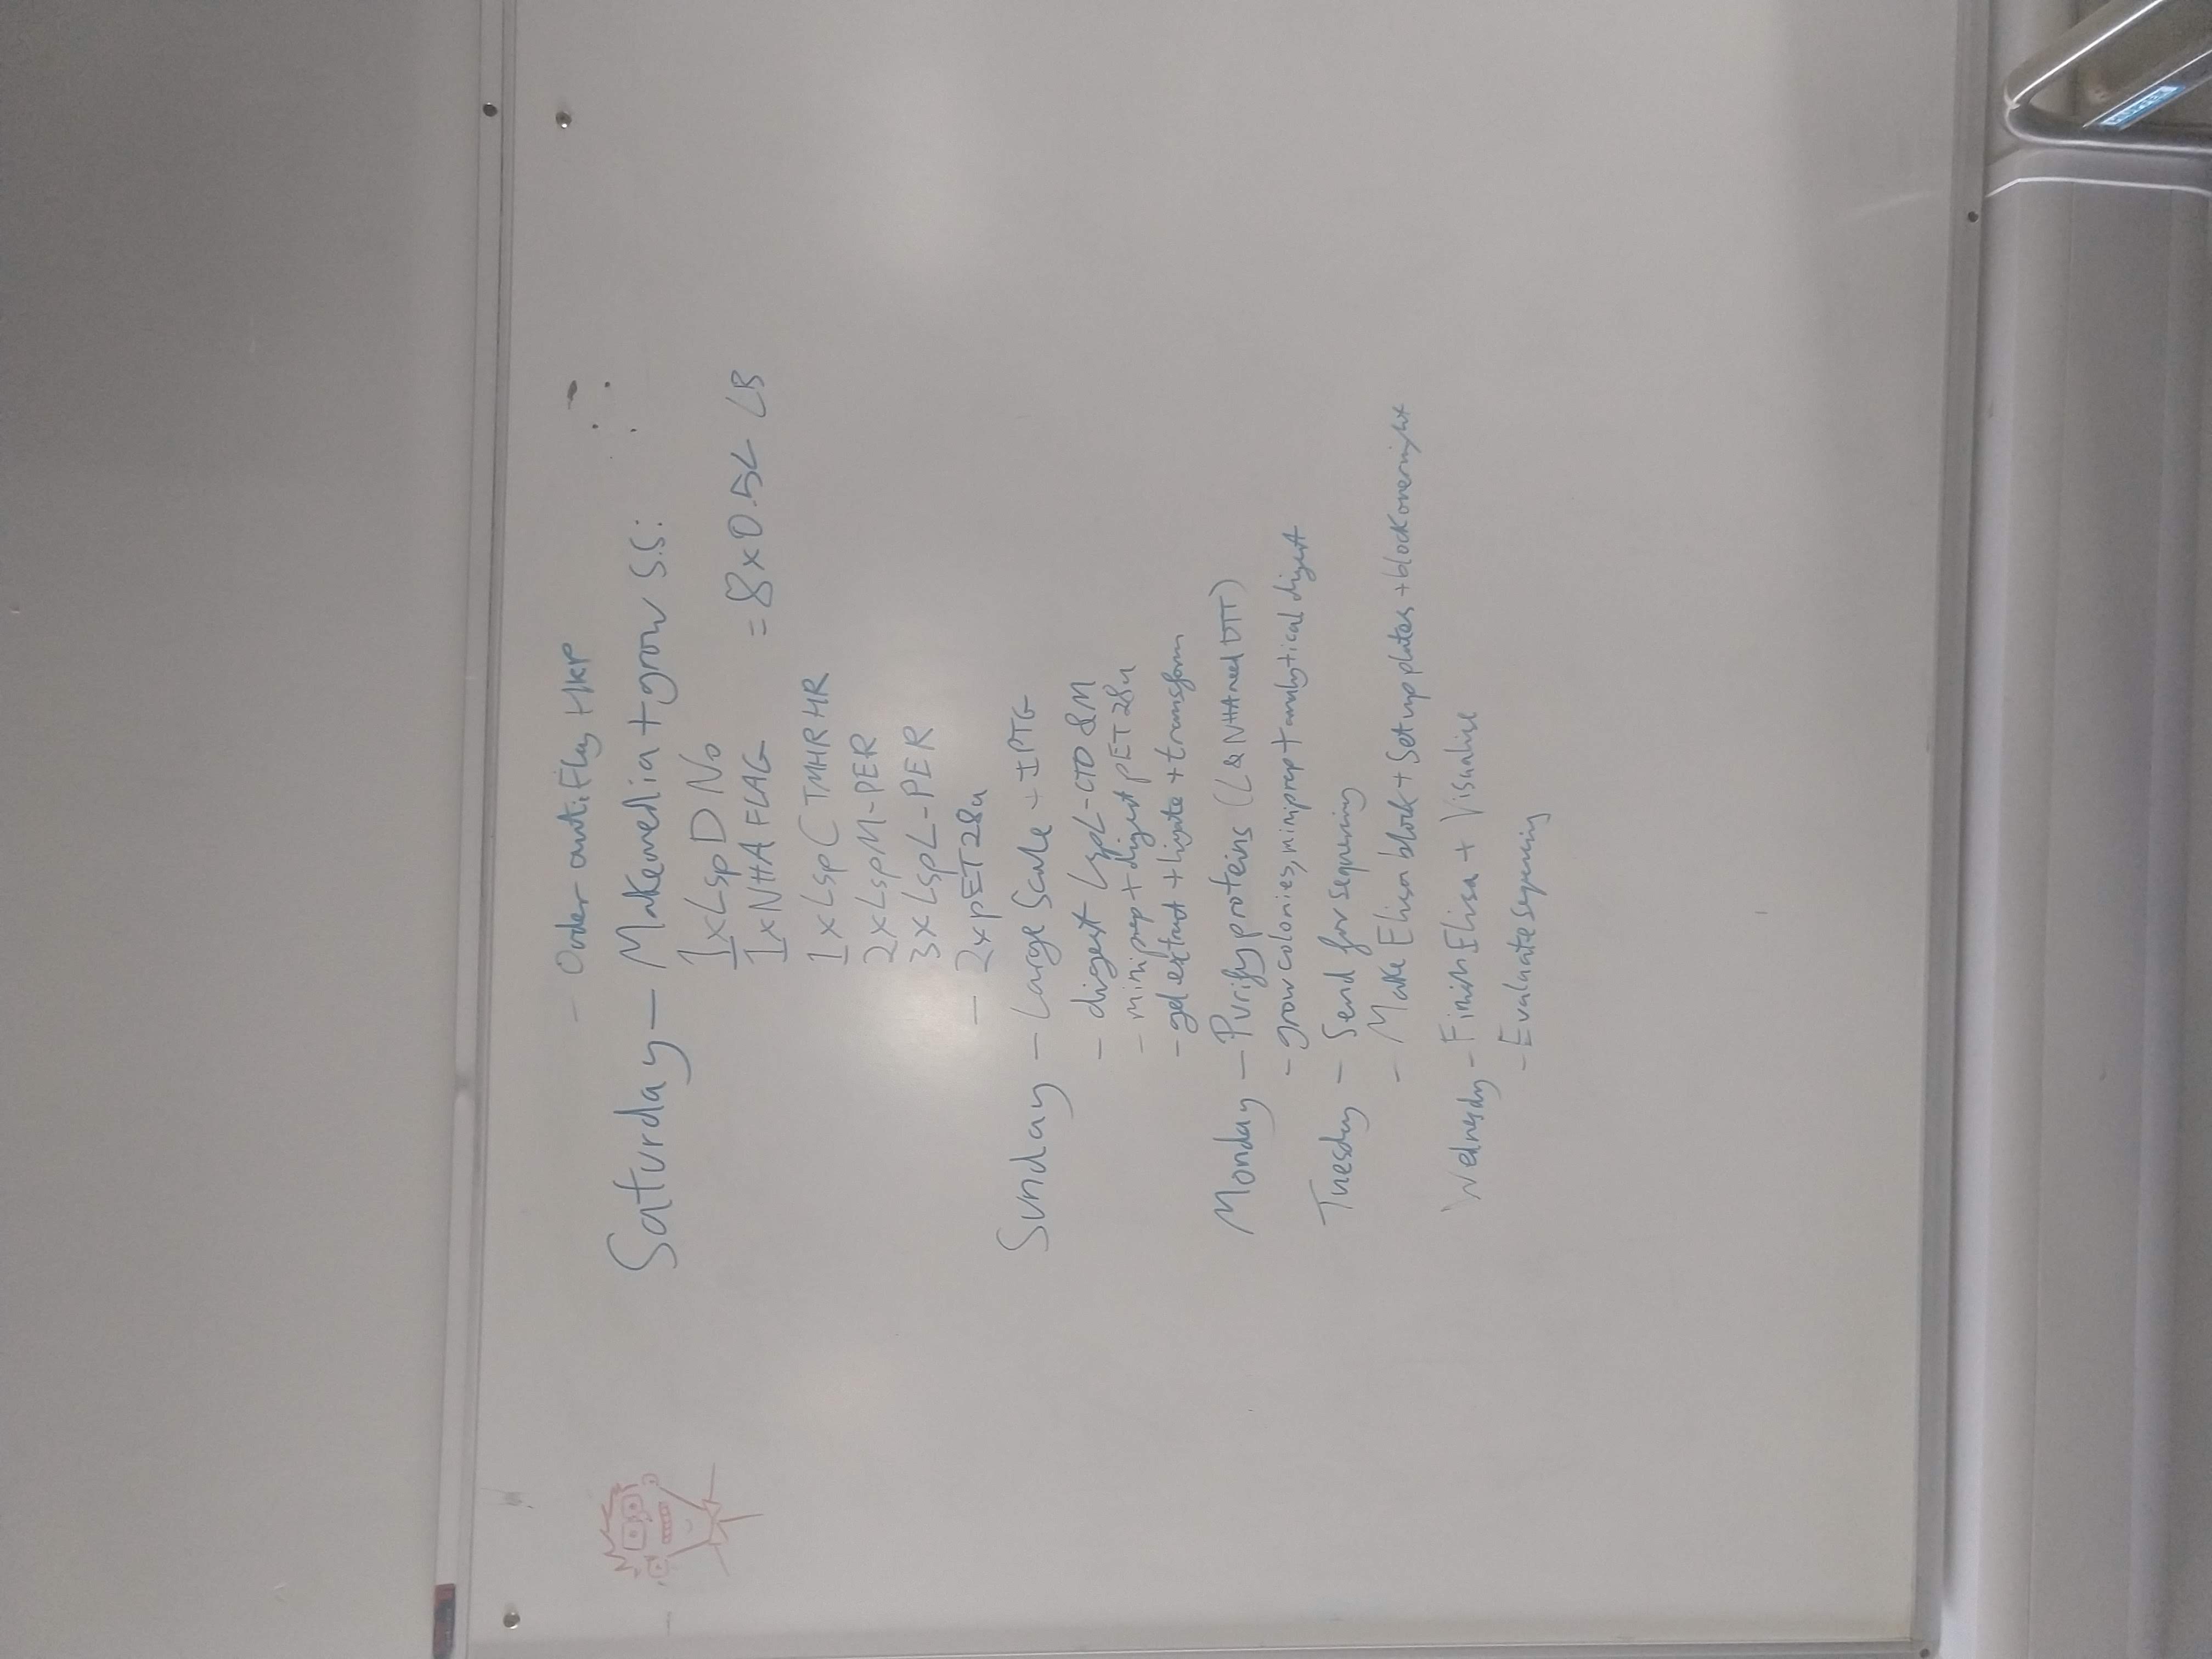 - Order anti Flag HRP
Saturday - Make media + grow S.S:
1xLspD No
1xNHA FLAG = 8x0.5L LB
1xLspC TMHR HR
2xLspM-PER
3xLspL-PER
- 2xpET28a
Sunday - Large Scale - IPTG
- digest LspL-CTD & M
- miniprep + digest pET28a
- gel extract + ligate + transform
Monday - Purify proteins (L & NHA need DTT)
- grow colonies, miniprep + analytical digest
Tuesday - Send for sequencing
- Make Elisa block + Set up plates + block overnight
Wednesday - Finish Elisa + Visualise
- Evaluate sequencing